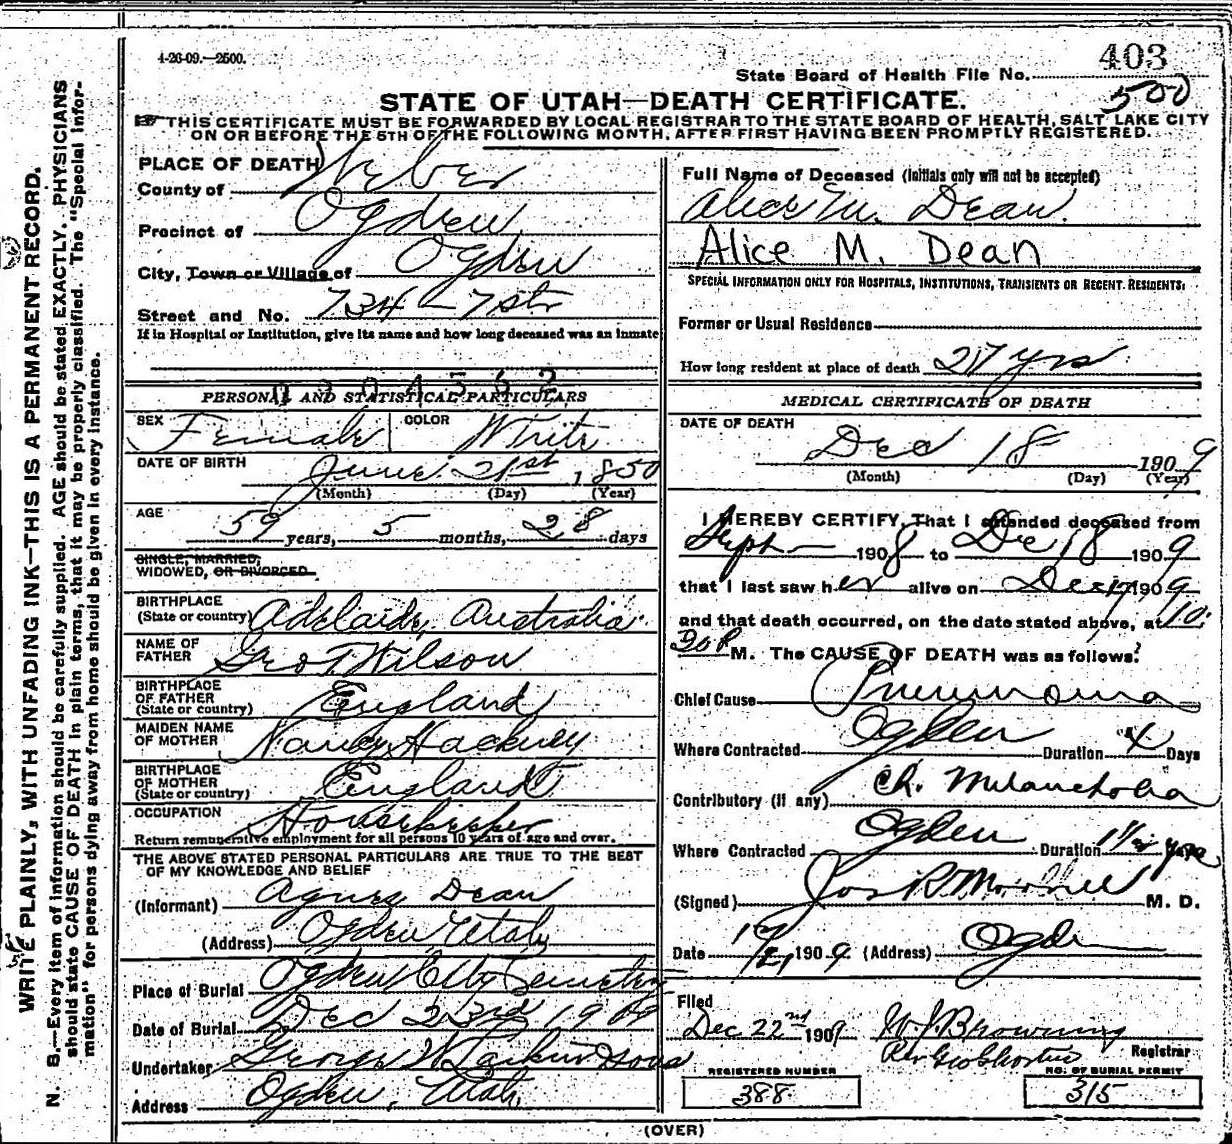 4-26-09.—2500.
403
State Board of Health File No.
500
STATE OF UTAH—DEATH CERTIFICATE.
THIS CERTIFICATE MUST BE FORWARDED BY LOCAL REGISTRAR TO THE STATE BOARD OF HEALTH, SALT LAKE CITY
ON OR BEFORE THE 5TH OF THE FOLLOWING MONTH, AFTER FIRST HAVING BEEN PROMPTLY REGISTERED.
WRITE PLAINLY, WITH UNFADING INK—THIS IS A PERMANENT RECORD.
N. B.—Every item of information should be carefully supplied. AGE should be stated EXACTLY. PHYSICIANS
should state CAUSE OF DEATH in plain terms, that it may be properly classified. The "Special Infor-
mation" for persons dying away from home should be given in every instance.
PLACE OF DEATH
County of Weber
Precinct of Ogden
City, Town or Village of Ogden
Street and No. 734 - 7 str
If in Hospital or Institution, give its name and how long deceased was an inmate
0304362
PERSONAL AND STATISTICAL PARTICULARS
SEX Female COLOR White
DATE OF BIRTH June 21st 1850
(Month) (Day) (Year)
AGE 59 years, 5 months, 28 days
SINGLE, MARRIED,
WIDOWED, OR DIVORCED
BIRTHPLACE
(State or country) Adelaide, Australia
NAME OF
FATHER Geo T. Wilson
BIRTHPLACE
OF FATHER
(State or country) England
MAIDEN NAME
OF MOTHER Nancy Hackney
BIRTHPLACE
OF MOTHER
(State or country) England
OCCUPATION Housekeeper
Return remunerative employment for all persons 10 years of age and over.
THE ABOVE STATED PERSONAL PARTICULARS ARE TRUE TO THE BEST
OF MY KNOWLEDGE AND BELIEF
(Informant) Agnes Dean
(Address) Ogden Utah
Place of Burial Ogden City Cemetery
Date of Burial Dec 23rd 1909
Undertaker George W Larkin Sons
Address Ogden, Utah
Full Name of Deceased (Initials only will not be accepted)
Alice M. Dean.
Alice M. Dean
SPECIAL INFORMATION ONLY FOR HOSPITALS, INSTITUTIONS, TRANSIENTS OR RECENT RESIDENTS:
Former or Usual Residence
How long resident at place of death 27 yrs
MEDICAL CERTIFICATE OF DEATH
DATE OF DEATH
Dec 18 1909
(Month) (Day) (Year)
I HEREBY CERTIFY, That I attended deceased from
Sept 1908 to Dec 18 1909
that I last saw her alive on Dec 17 1909
and that death occurred, on the date stated above, at 10:
30 P M. The CAUSE OF DEATH was as follows:
Chief Cause Pneumonia
Where Contracted Ogden Duration 4 Days
Contributory (if any) Ch. Melancholia
Where Contracted Ogden Duration 1 1/2 years
(Signed) Jos R Morrell M. D.
Date 1909 (Address) Ogden
Filed
Dec 22nd 1909 W. J. Browning
Registrar
REGISTERED NUMBER
388
NO. OF BURIAL PERMIT
315
(OVER)